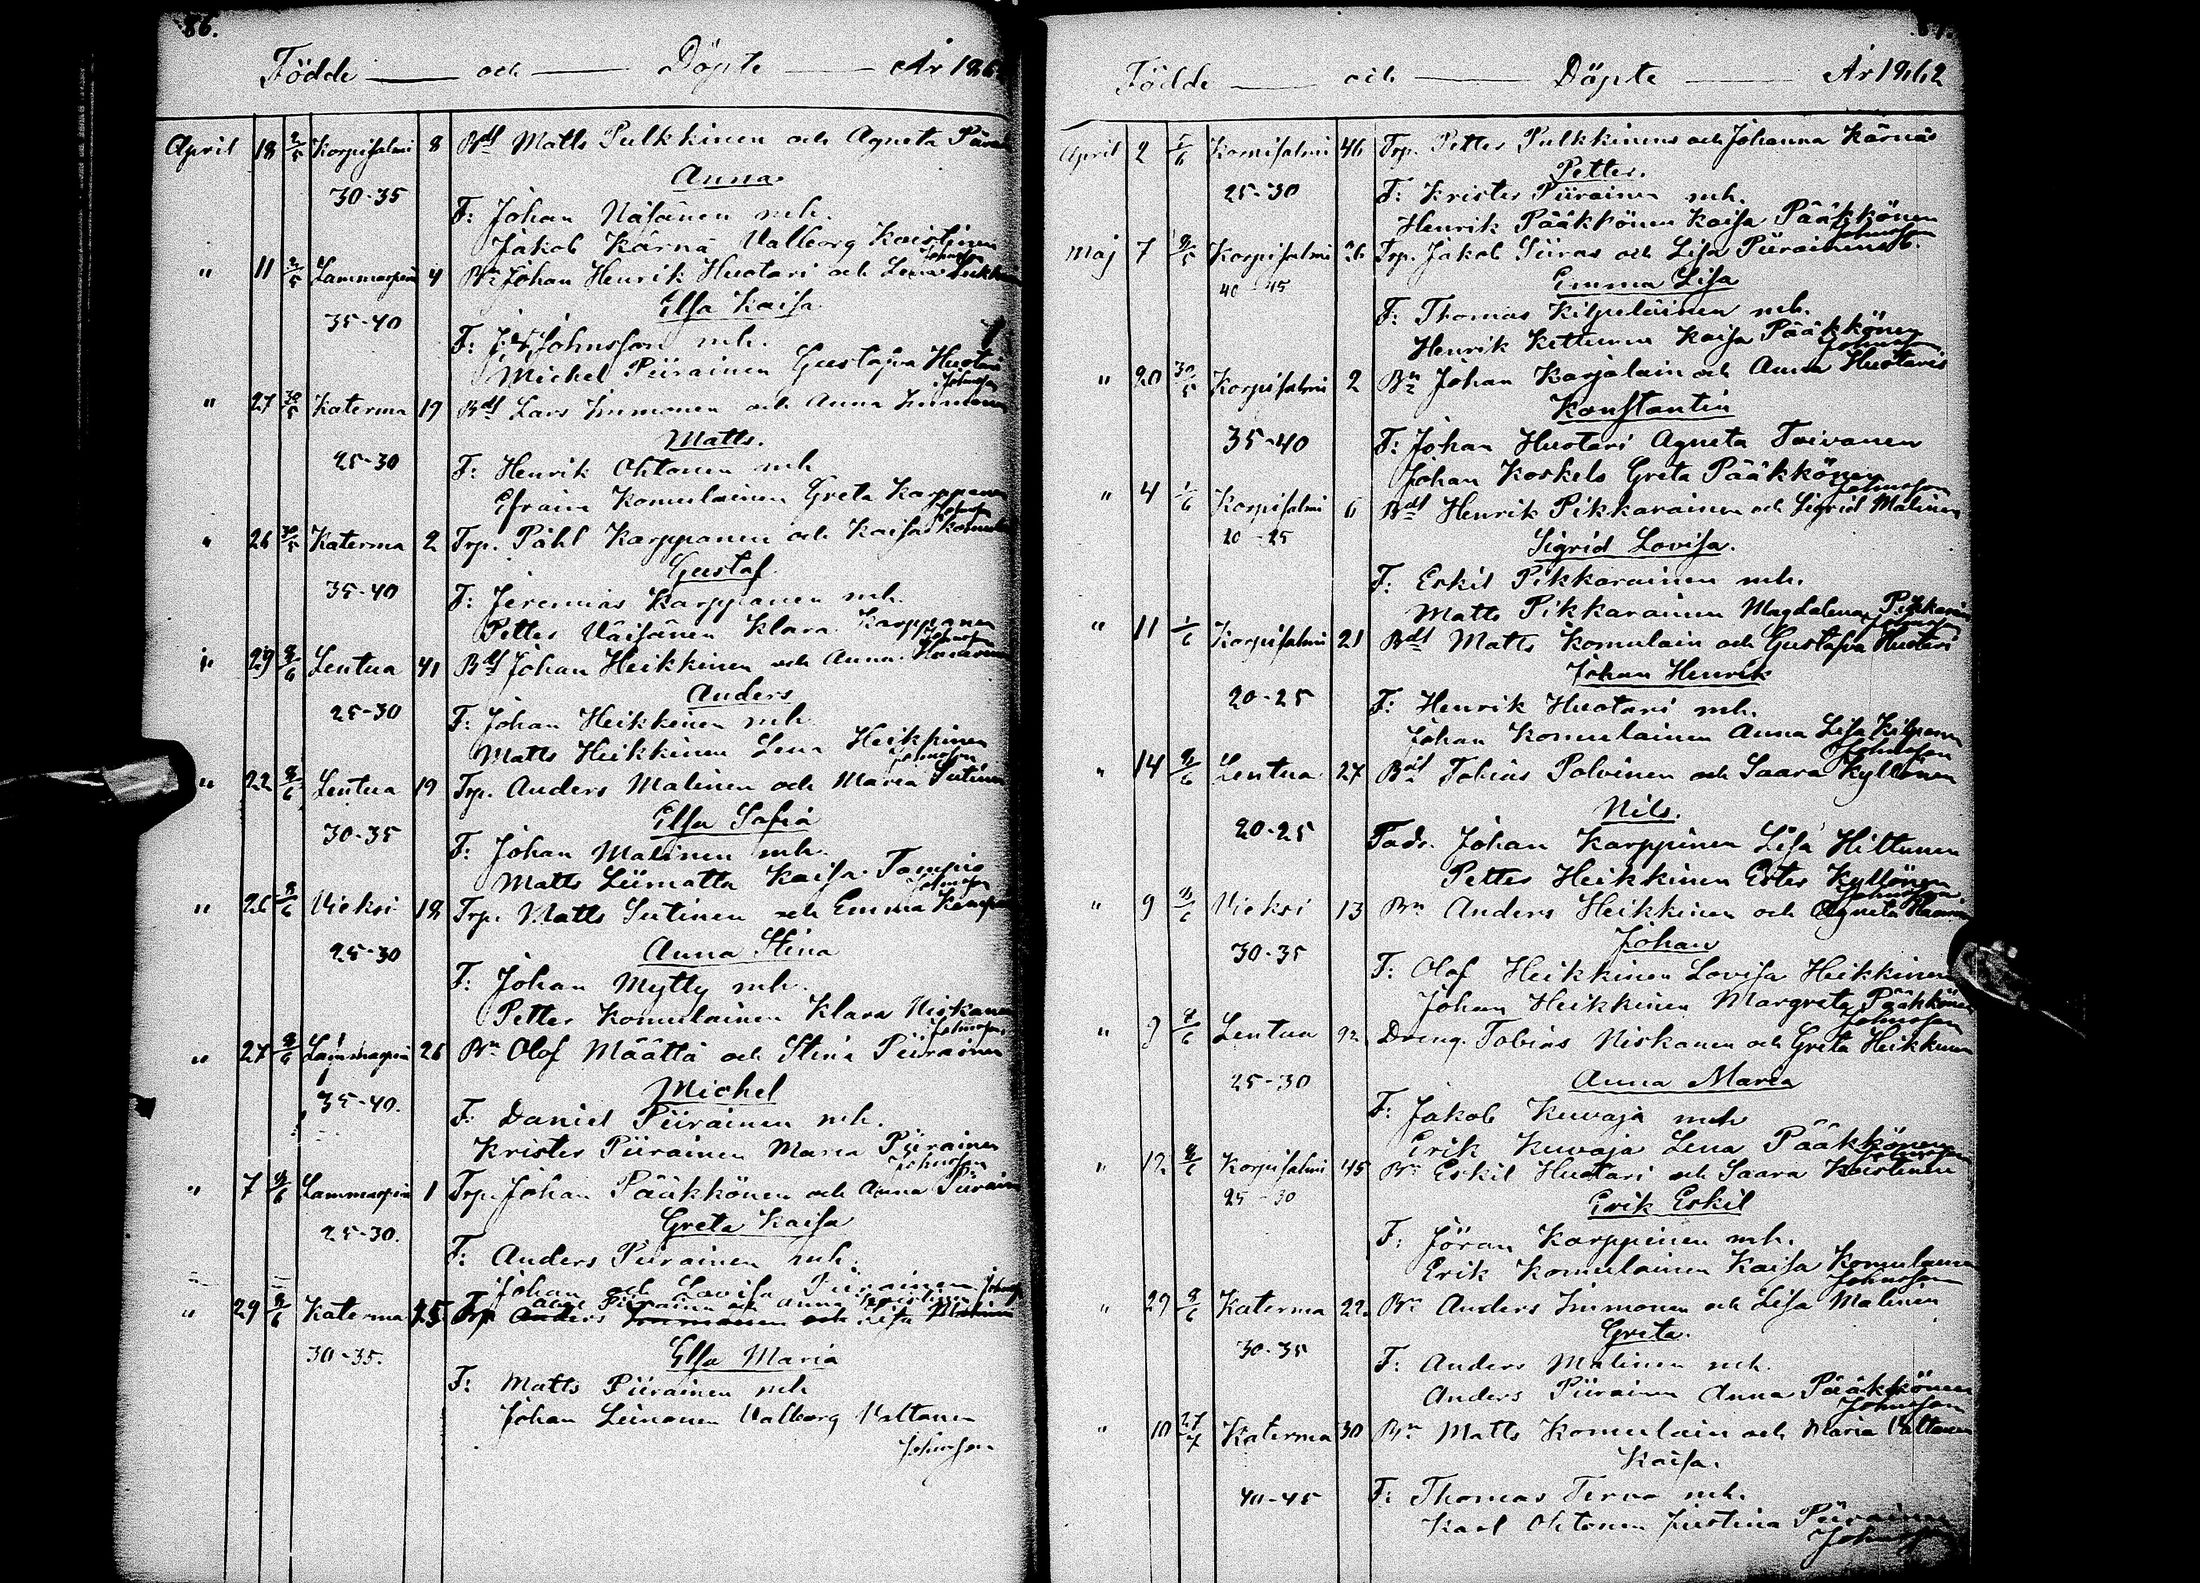 86.
Födde — och — Döpte — År 186
April 18 2/5 Korpisalmi 8 Bdl Matts Pulkkinen och Agneta
Anna.
30-35
F: Johan Näsänen mh.
Jakob Kärnä Valborg Kaistinen
Johnsson
" 11 2/5 Lammaspera 4 Bn Johan Henrik Huotari och Lena
Elsa Kaisa
35-40
F: Johnsson mh.
Michel Piirainen Gustafva Huotari
Johnsson
" 27 30/5 Katerma 19 Bdl Lars Immonen och Anna Immonen
Matts.
25-30
F: Henrik Ohtonen mh
Efraim Komulainen Greta Karppanen
Johnsson
" 26 30/5 Katerma 2 Trp. Påhl Karppanen och Kaisa
Gustaf
35-40
F: Jeremias Karppanen mh.
Petter Väisänen Klara Karppanen
Johnsson
" 29 8/6 Lentua 41 Bdl Johan Heikkinen och Anna
Anders
25-30
F: Johan Heikkinen mh
Matts Heikkinen Lena Heikkinen
Johnsson
" 22 8/6 Lentua 19 Trp. Anders Malinen och Maria Sutinen
Elsa Safia
30-35
F: Johan Malinen mh.
Matts Liimatta Kaisa
Johnsson
" 26 8/6 Vieksi 18 Trp. Matts Sutinen och Emma
Anna Stina
25-30
F: Johan Mytty mh.
Petter Komulainen Klara Niskanen
Johnsson
" 27 8/6 Lammaspera 26 Bn Olof Määttä och Stina Piirainen
Michel
35-40.
F: Daniel Piirainen mh.
Krister Piirainen Maria Piirainen
Johnsson
" 7 9/6 Lammaspera 1 Trp. Johan Pääkkönen och Anna Piirain
Greta Kaisa
25-30.
F: Anders Piirainen mh.
Johan och Lovisa Piirainen Johnsson
Piirainen och Anna
" 29 8/6 Katerma 25 Trp Anders Immonen och Lisa Malinen
Elsa Maria
30-35.
F: Matts Piirainen mh
Johan Leinonen Valborg Valtanen
Johnsson
87.
Födde — och — Döpte — År 1862
April 2 1/6 Kornisalmi 46 Trp. Petter Pulkkinens och Johanna Kärnäs
Petter.
25-30
F: Krister Piirainen mh.
Henrik Pääkkönen Kaisa Pääkkönen
Johnsson
Maj 7 9/5 Korpisalmi 26 Trp. Jakob Siiras och Lisa Piirainens
Emma Lisa
40-45
F: Thomas Kilpeläinen mh.
Henrik Kettunen Kaisa Pääkkönen
Johnsson
" 20 30/5 Korpisalmi 2 Bn Johan Karjalain och Anna Huotaris
Konstantin
35-40
F: Johan Huotari Agneta Toivanen
Johan Korkels Greta Pääkkönen
Johnsson
" 4 1/6 Korpisalmi 6 Bdl Henrik Pikkarainen och Sigrid Malinen
Sigrid Lovisa.
20-25
F: Eskil Pikkarainen mh.
Matts Pikkarainen Magdalena Pikkarain
Johnsson
" 11 1/6 Korpisalmi 21 Bdl Matts Komulain och Gustafva Huotari
Johan Henrik
20-25
F: Henrik Huotari mh.
Johan Komulainen Anna Lisa
Johnsson
" 14 8/6 Lentua 27 Bdl Tobias Polvinen och Saara Kyllönen
Nils.
20-25
Fadr. Johan Karppinen Lisa Hiltunen
Petter Heikkinen Ester Kyllönen
Johnsson.
" 9 8/6 Vieksi 13 Bn Anders Heikkinen och Agneta
Johan
30-35
F: Olof Heikkinen Lovisa Heikkinen
Johan Heikkinen Margreta Pääkkönen
Johnsson
" 9 8/6 Lentua 92 Dreng. Tobias Niskanen och Greta Heikkinen
Anna Maria
25-30
F: Jakob Kuvaja mh
Erik Kuvaja Lena Pääkkönen
Johnsson
" 12 8/6 Korpisalmi 45 Bn Eskil Huotari och Saara Kaistinen
Erik Eskil
25-30
F: Jöran Karppinen mh.
Erik Komulainen Kaisa Komulainen
Johnsson
" 29 8/6 Katerma 22. Bn Anders Immonen och Lisa Malinen
Greta.
30-35
F: Anders Malinen mh.
Anders Piirainen Anna Pääkkönen
Johnsson
" 10 27/7 Katerma 30 Bn Matts Komulain och Maria Valtanen
Kaisa.
40-45
F: Thomas Tervo mh.
Karl Ohtonen Justina Piirainen
Johnsson